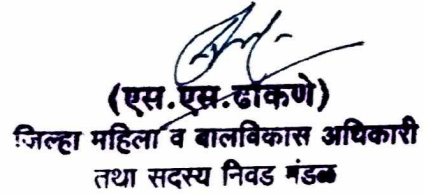 (एस.एम.ढाकणे)
जिल्हा महिला व बालविकास अधिकारी
तथा सदस्य निवड मंडळ